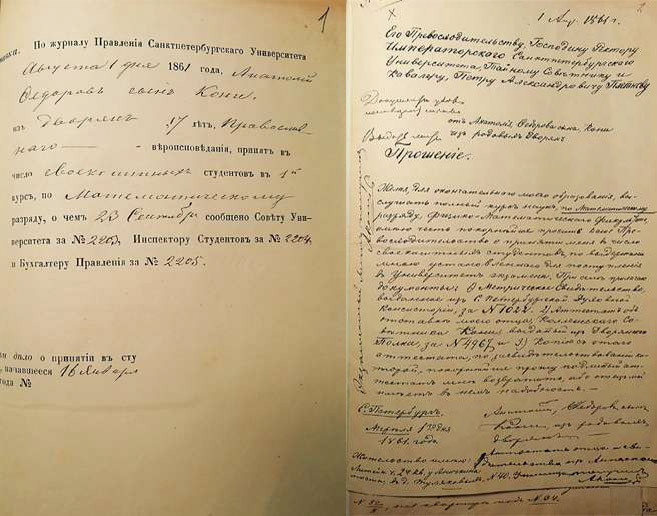 1
По журналу Правленія Санктпетербургскаго Университета
Августа 1 дня 1861 года, Анатолій
Ѳедоровъ сынъ Кони,
изъ Дворянъ 17 лѣтъ, Православ-
наго вѣроисповѣданія, принятъ въ
число своекоштныхъ студентовъ въ 1й
курсъ, по Математическому
разряду, о чемъ 23 Сентября сообщено Совѣту Уни-
верситета за № 2203, Инспектору Студентовъ за № 2204
и Бухгалтеру Правленія за № 2205.
дѣло о принятіи въ сту
, начавшееся 16 Января
года №
2
1 Апр. 1861 г.
Его Превосходительству, Господину Ректору
Императорскаго Санктпетербургскаго
Университета, Тайному Совѣтнику и
Кавалеру, Петру Александровичу Плетневу
отъ Анатолія, Ѳедорова сына, Кони
изъ родовыхъ Дворянъ
Прошеніе.
Желая, для окончательнаго моего образованія, вы-
слушать полный курсъ наукъ, по Математическому
разряду Физико-Математическаго факультета,
имѣю честь покорнѣйше просить Ваше Пре-
восходительство о принятіи меня въ число
своекоштныхъ студентовъ, по выдержаніи
мною установленнаго для поступленія
въ Университетъ экзамена. При семъ прилагаю
документы: 1) Метрическое Свидѣтельство,
выданное изъ С. Петербургской Духовной
Консисторіи, за № 1022. 2) Аттестатъ объ
отставкѣ моего отца, Коллежскаго Со-
вѣтника Кони, выданный изъ Дворянскаго
Полка, за № 4967 и 3) Копію съ этого
аттестата, по засвидѣтельствованіи ко-
торой, покорнѣйше прошу подлинный ат-
тестатъ мнѣ возвратить, ибо отецъ мой
имѣетъ въ немъ надобность. —
С. Петербургъ.
Апрѣля 1го дня
1861. года
Анатолій, Ѳедоровъ сынъ
Кони, изъ родовыхъ
дворянъ
Жительство имѣю:
Литейн. ч. 2 кв. у Аничкина
моста, въ д. Туляковой, № 40.